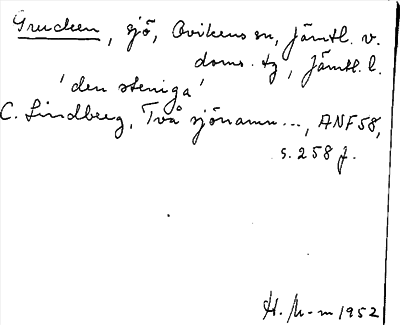 Grucken, sjö, Ovikens sn, Jämtl. v.
doms. tg, Jämtl. l.
'den steniga'
C. Lindberg, Två sjönamn..., ANF 58,
s. 258 f.
H. M-m 1952